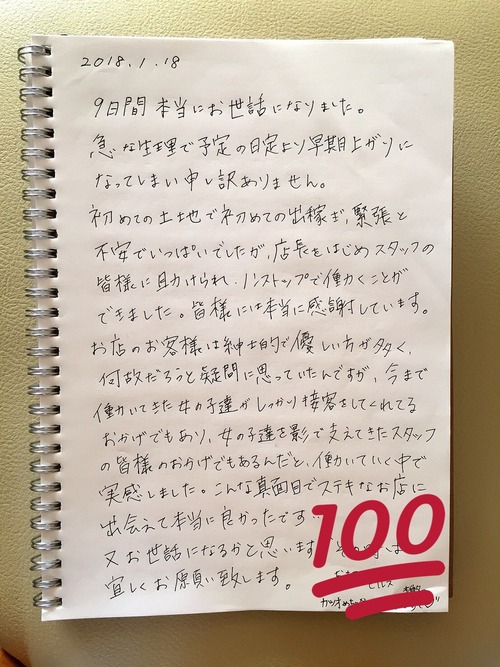 2018.1.18
9日間 本当にお世話になりました。
急な生理で予定の日定より早期上がりに
なってしまい申し訳ありません。
初めての土地で初めての出稼ぎ、緊張と
不安でいっぱいでしたが、店長をはじめスタッフの
皆様に助けられ、ノンストップで働くことが
できました。皆様には本当に感謝しています。
お店のお客様は紳士的で優しい方が多く、
何故だろうと疑問に思っていたんですが、今まで
働いてきた女の子達がしっかり接客をしてくれてる
おかげでもあり、女の子達を影で支えてきたスタッフ
の皆様のおかげでもあるんだと、働いていく中で
実感しました。こんな真面目でステキなお店に
出会えて本当に良かったです
又お世話になるかと思います
宜しくお願い致します。
100